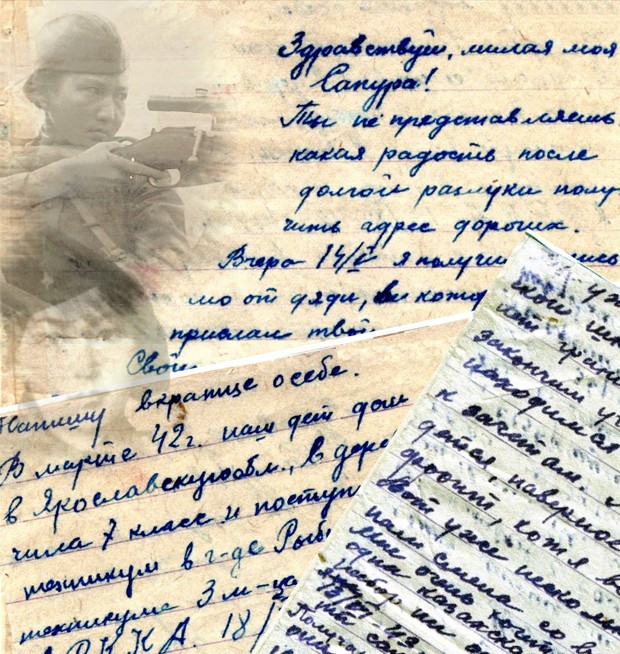 Здравствуй, милая моя
Сапура!
Ты не представляешь
какая радость после
долгой разлуки полу
чить адрес дорогих.
Вчера 14/V я получи
мо от дяди, в кот
прислал твой
Свой
Напишу вкратце о себе.
В марте 42 г. наш дет дом
в Ярославскую обл., в дере
чила 7 класс и поступ
техникум в г-де Рыб
техникума 3 м-ца
в Р К К А. 18/
уж
ской шк
закончили уч
находимся
к зачетам.
дается, наверное
фронт, хотя в
Вот уже несколь
нам смена со в
Мне очень хот
одна казахско
набор
Получ